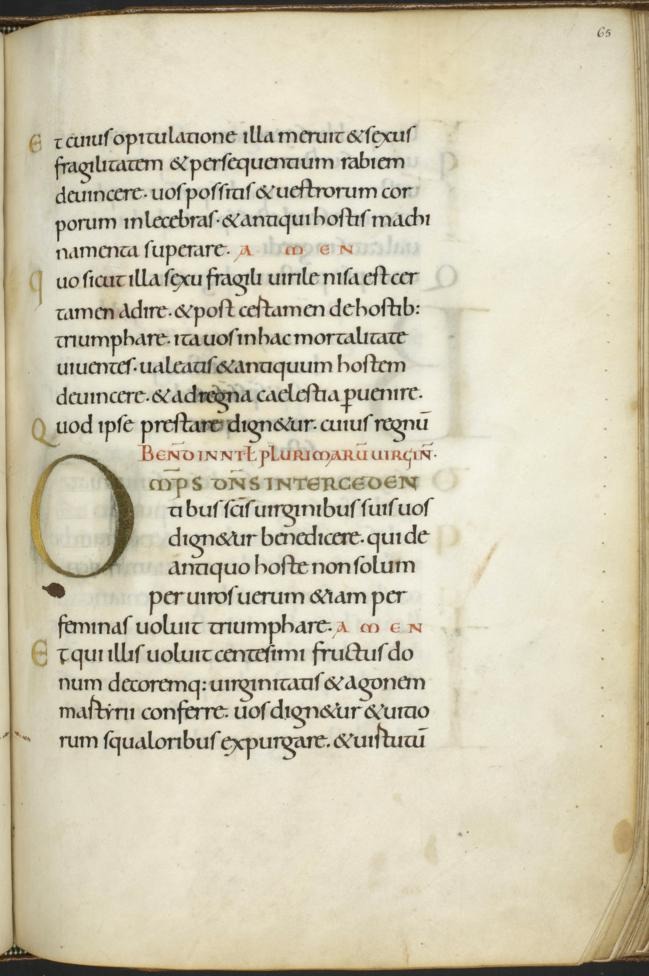 65
Et cuius opitulatione illa meruit & sexus
fragilitatem & persequentium rabiem
deuincere. uos possitis & uestrorum cor
porum inlecebras. & antiqui hostis machi
namenta superare. AMEN
Quo sicut illa sexu fragili uirile nisa est cer
tamen adire. & post certamen de hostib:
triumphare. ita uos in hac mortalitate
uiuentes. ualeatis & antiquum hostem
deuincere. & ad regna caelestia ꝑuenire.
Quod ipse prestare dign&ur. cuius regnū
BEN̄D IN NT̄Ł PLURIMARŪ UIRGIN̄.
OMP̄S DN̄S INTERCEDEN
tibus sc̄is uirginibus suis uos
dign&ur benedicere. qui de
antiquo hoste non solum
per uiros uerum &iam per
feminas uoluit triumphare. AMEN
Et qui illis uoluit centesimi fructus do
num decoremq: uirginitatis & agonem
martyrii conferre. uos dign&ur & uitio
rum squaloribus expurgare. & uirtutū